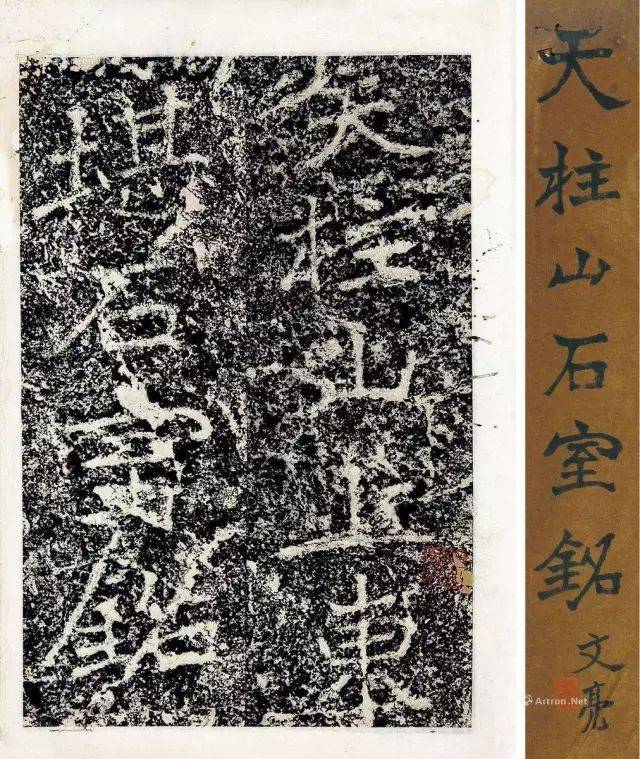 天柱山石室銘
文亮
天柱山之東
堪石室銘
Artron.Net